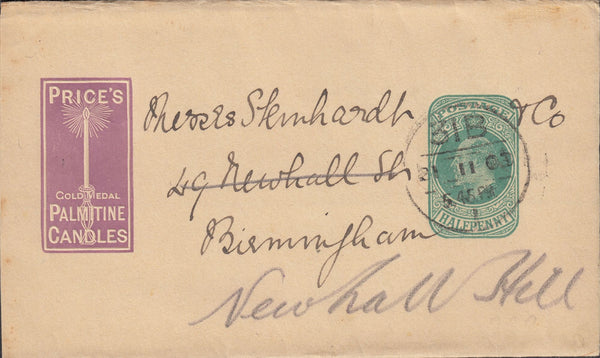 PRICE'S
GOLD MEDAL
PALMITINE
CANDLES
Messrs Steinhardt & Co
49 Newhall St
Birmingham
Newhall Hill
POSTAGE
HALFPENNY
11 03